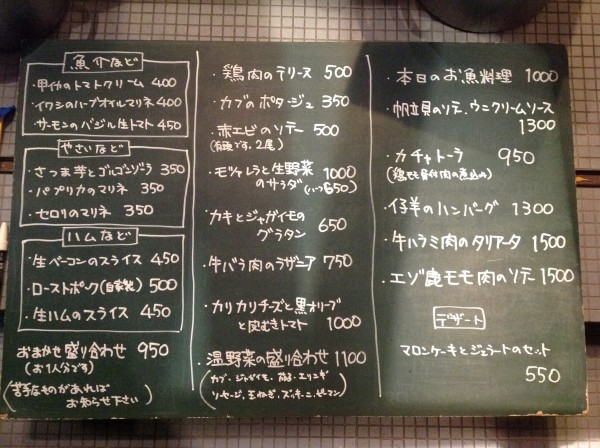 魚介など
・甲イカのトマトクリーム 400
・イワシのハーブオイルマリネ 400
・サーモンのバジル生トマト 450
やさいなど
・さつま芋とゴルゴンゾーラ 350
・パプリカのマリネ 350
・セロリのマリネ 350
ハムなど
・生ベーコンのスライス 450
・ローストポーク(自家製) 500
・生ハムのスライス 450
おまかせ盛り合わせ 950
(お1人分です)
(苦手なものがあれば
お知らせ下さい)
・鶏肉のテリース 500
・カブのポタージュ 350
・赤エビのソテー 500
(有頭です、2尾)
・モッツァレラと生野菜 1000
のサラダ (ハーフ650)
・カキとジャガイモの
グラタン 650
・牛バラ肉のラザニア 750
・カリカリチーズと黒オリーブ
と皮むきトマト 1000
・温野菜の盛り合わせ 1100
(カブ、ジャガイモ、茄子、エリンギ
ソーセージ、玉ねぎ、ズッキーニ、ピーマン)
・本日のお魚料理 1000
・帆立貝のソテー、ウニクリームソース
1300
・カチャトーラ 950
(鶏モモ骨付肉の煮込み)
・仔羊のハンバーグ 1300
・牛ハラミ肉のタリアータ 1500
・エゾ鹿モモ肉のソテー 1500
デザート
マロンケーキとジェラートのセット
550